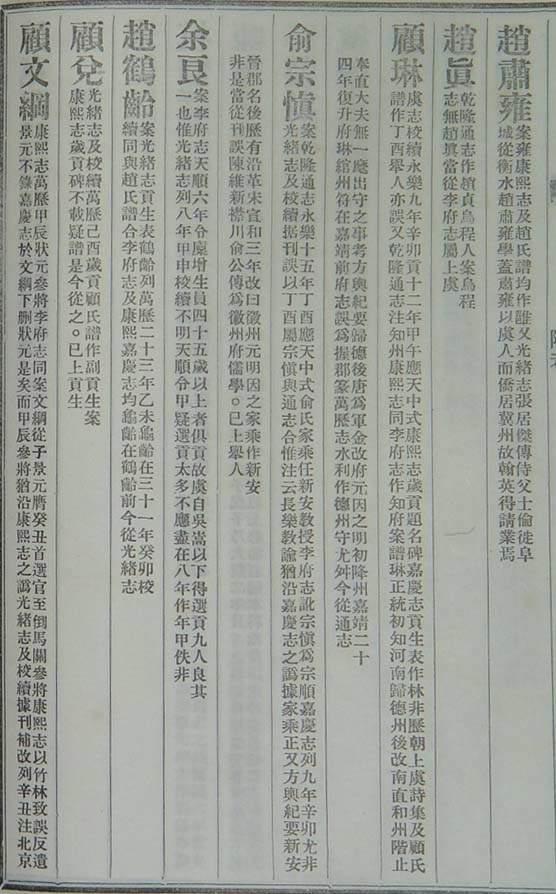 趙肅雍
案雍康熙志及趙氏譜均作誰又光緒志張居傑傳侍父士倫徙阜
城從衡水趙肅雍學蓋肅雍以虞人而僑居冀州故翰英得請業焉
趙眞
乾隆通志作趙貞烏程人案烏程
志無趙眞當從李府志屬上虞
顧琳
虞志校續永樂九年辛卯貢十二年甲午應天中式康熙志歲貢題名碑嘉慶志貢生表作林非歷朝上虞詩集及顧氏
譜作丁酉舉人亦誤又乾隆通志注知州康熙志同李府志作知府案譜琳正統初知河南歸德州後改南直和州階止
奉直大夫無一麾出守之事考方輿紀要歸德後唐為軍金改府元因之明初降州嘉靖二十
四年復升府琳綰州符在嘉靖前府志誤為握郡篆萬歷志水利作德州守尤舛今從通志
俞宗愼
案乾隆通志永樂十五年丁酉應天中式俞氏家乘任新安教授李府志訛宗愼爲宗順嘉慶志列九年辛卯尤非
光緒志及校續據刊誤以丁酉屬宗愼與通志合惟注云長樂敎諭猶沿嘉慶志之譌據家乘正又方輿紀要新安
晉郡名後歷有沿革宋宣和三年改曰徽州元明因之家乘作新安
非是當從刊誤陳維新襟川俞公傳爲徽州府儒學○已上舉人
余艮
案李府志天順六年令廩增生員四十五歲以上者俱貢故虞自吳嵩以下得選貢九人艮其
一也惟光緒志列八年甲申校續不明天順令甲疑選貢太多不應盡在八年作年甲佚非
趙鶴齡
案光緒志貢生表鶴齡列萬歷二十三年乙未龜齡在三十一年癸卯校
續同與趙氏譜合李府志及康熙嘉慶志均龜齡在鶴齡前今從光緒志
顧兌
光緒志及校續萬歷己酉歲貢顧氏譜作副貢生案
康熙志歲貢碑不載疑譜是今從之○已上貢生
顧文綱
康熙志萬歷甲辰狀元參將李府志同案文綱從子景元膺癸丑首選官至倒馬關參將康熙志以竹林致誤反遺
景元不錄嘉慶志於文綱下刪狀元是矣而甲辰參將猶沿康熙志之譌光緒志及校續據刊補改列辛丑注北京